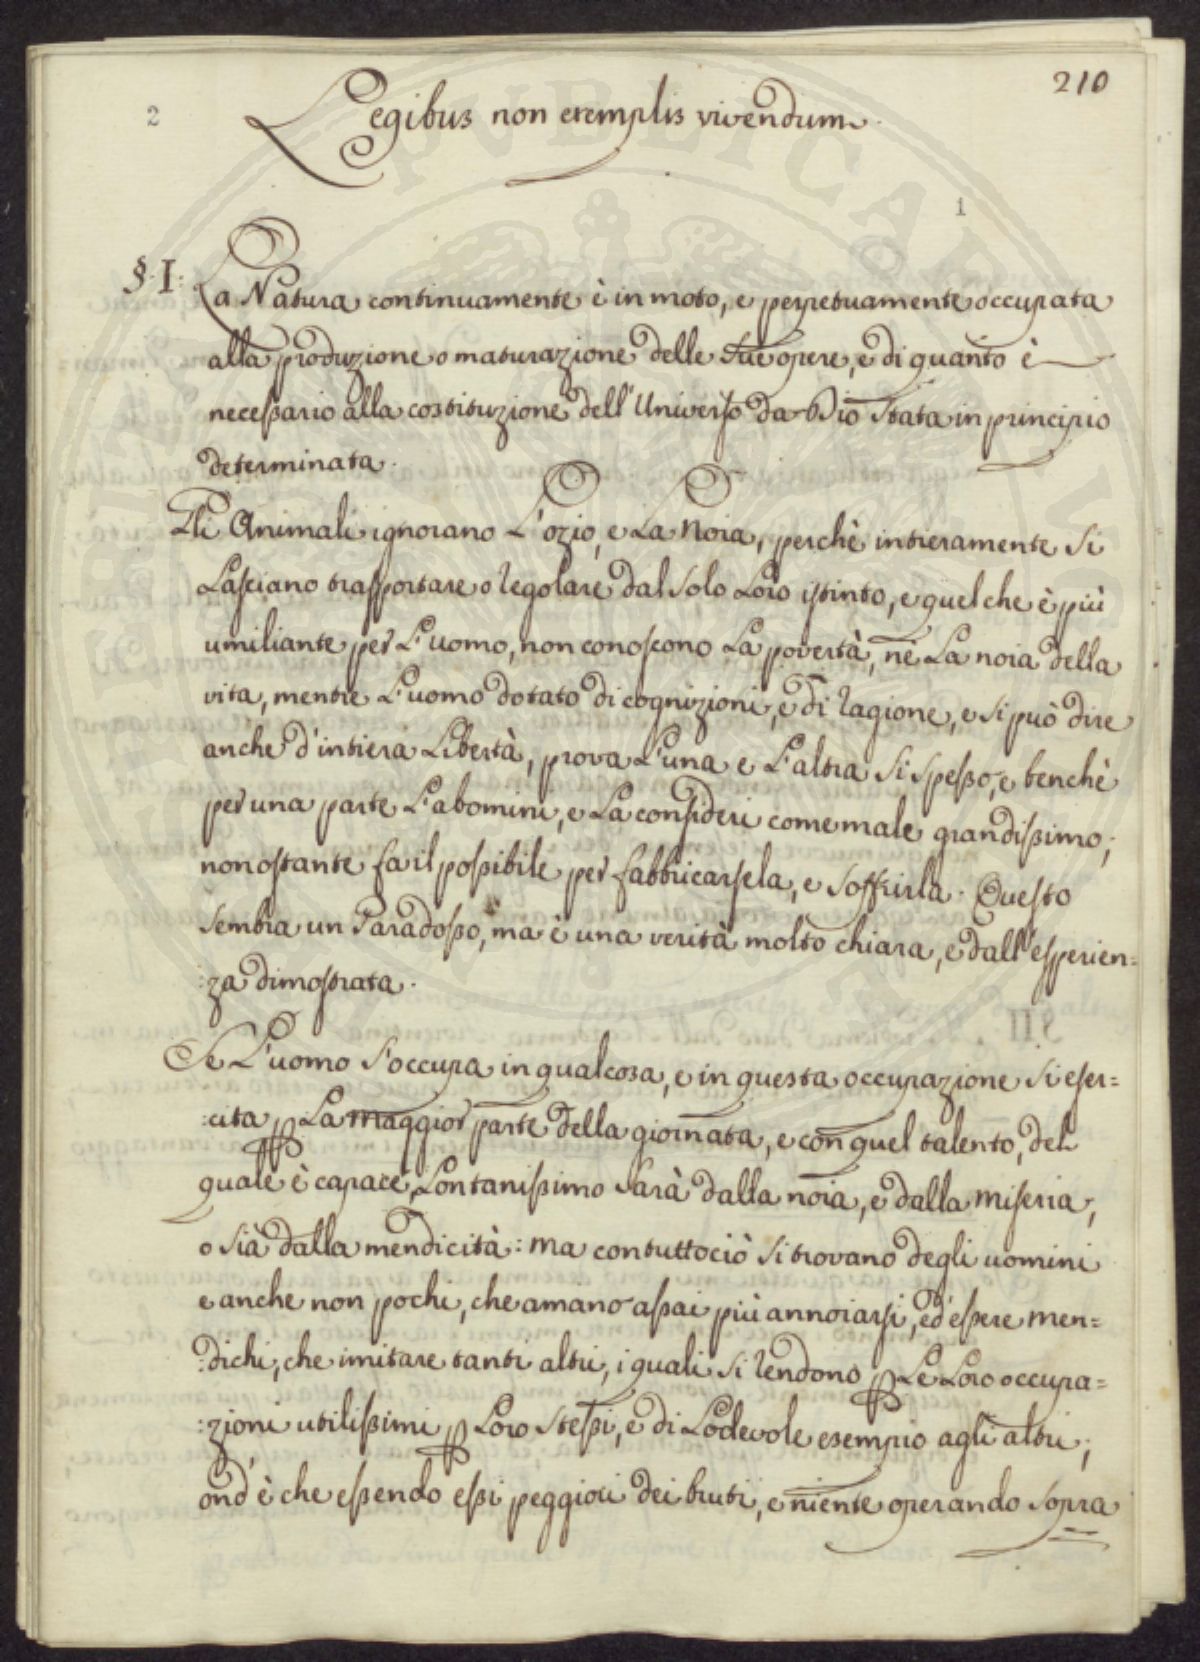 210
2
Legibus non exemplis vivendum.
1
§. I: La Natura continuamente è in moto, e perpetuamente occupata
alla produzione o maturazione delle sue opere, e di quanto è
necessario alla costituzione dell'Universo da Dio stata in principio
determinata.
Gli Animali ignorano l'ozio, e la Noia, perchè intieramente si
lasciano trasportare o regolare dal solo loro istinto, e quel che è più
umiliante per l'uomo, non conoscono la povertà, nè la noia della
vita, mentre l'uomo dotato di cognizioni, e di ragione, e si può dire
anche d'intiera libertà, prova l'una e l'altra sì spesso, e benchè
per una parte l'abomini, e la consideri come male grandissimo;
nonostante fa il possibile per fabbricarsela, e soffrirla. Questo
sembra un Paradosso, ma è una verità molto chiara, e dall'esperien=
:za dimostrata.
Se l'uomo s'occupa in qualcosa, e in questa occupazione si eser=
:cita p la maggior parte della giornata, e con quel talento, del
quale è capace, lontanissimo sarà dalla noia, e dalla miseria,
o sia dalla mendicità: ma contuttociò si trovano degli uomini
e anche non pochi, che amano assai più annoiarsi, ed essere men=
:dichi, che imitare tanti altri, i quali si rendono p le loro occupa=
:zioni utilissimi p loro stessi, e di lodevole esempio agli altri;
ond'è che essendo essi peggiori dei bruti, e niente operando sopra